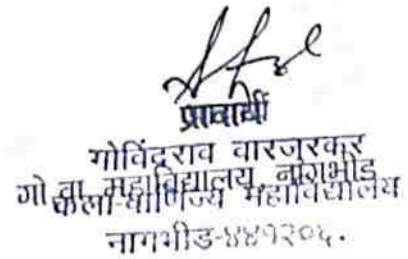 प्राचार्य
गोविंदराव वारजुरकर
गो. वा. महाविद्यालय, नागभीड
कला-वाणिज्य महाविद्यालय
नागभीड-४४१२०५.